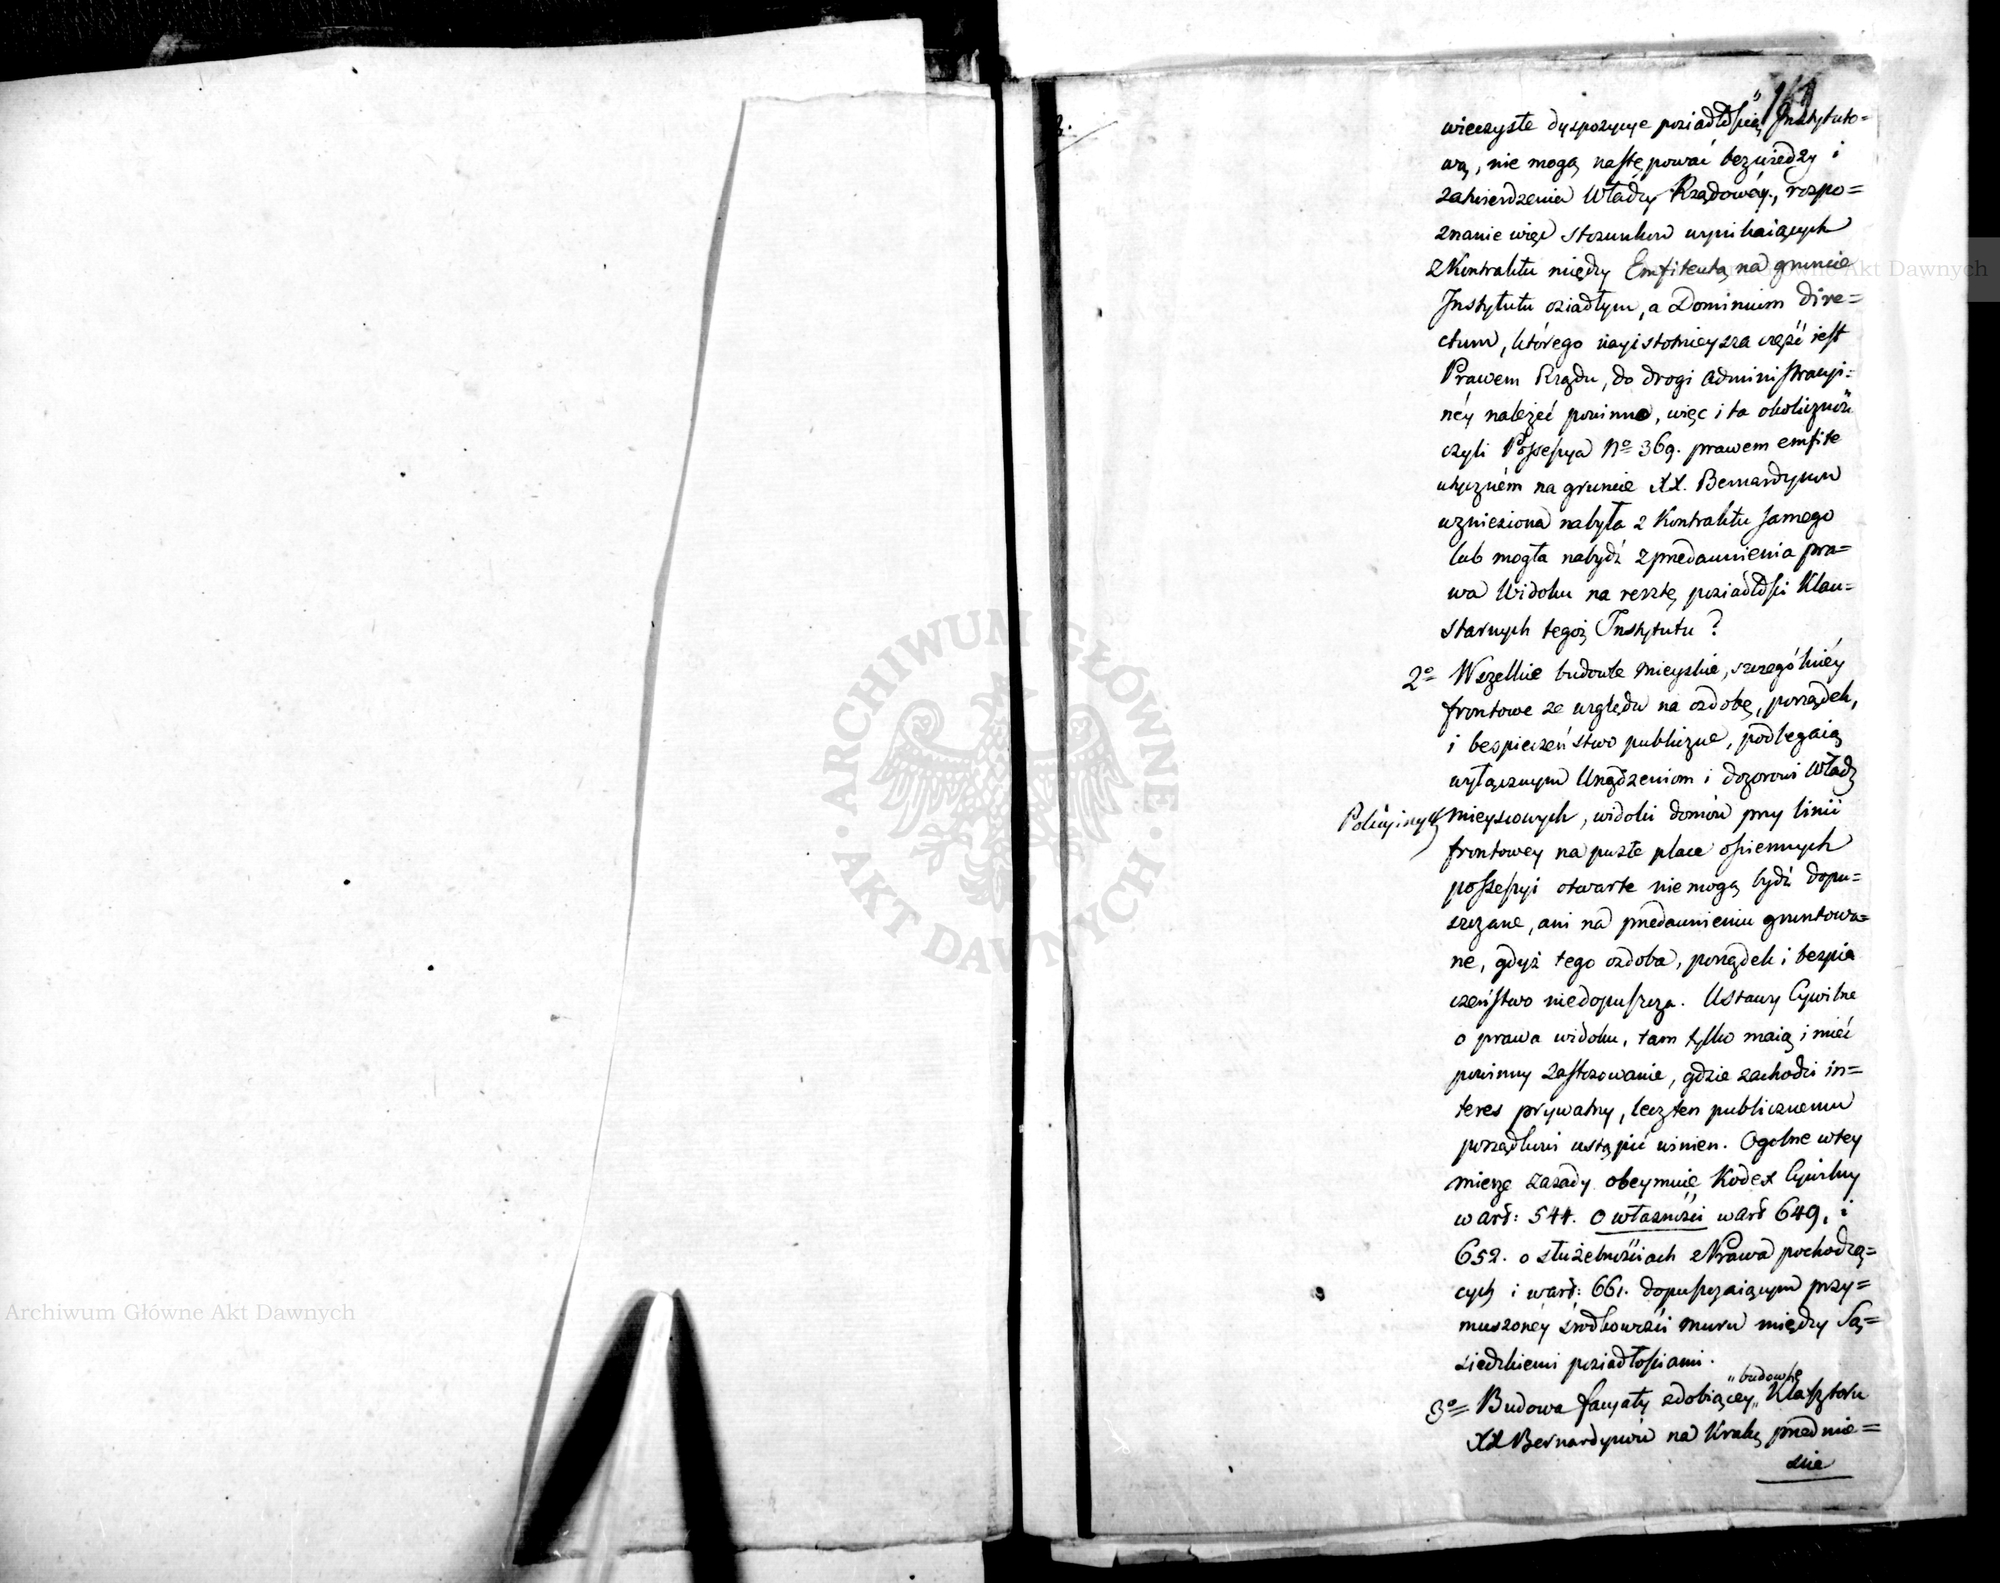 wieczyste dyspozycye posiadłością Instytuto=
wą, nie mogą następować bez wiedzy i
zatwierdzenia Władzy Rządowéy, rozpo=
znanie więc stosunków wynikaiących
z Kontraktu między Emfiteutą na gruncie
Instytutu osiadłym, a Dominium dire=
ctum, którego nayistotnieysza część iest
Prawem Rządu, do drogi administracyi=
néy należeć powinno, więc i ta okoliczność
czyli Possessya No 369. prawem emfite
utyczném na gruncie XX. Bernardynów
wzniesiona nabyła z Kontraktu samego
lub mogła nabydź z przedawnienia pra=
wa Widoku na resztę posiadłości Klau=
starnych tegoż Instytutu?
2o Wszelkie budowle mieyskie, szczególniéy
frontowe ze względu na ozdobę, porządek,
i bespieczeństwo publiczne, podlegaią
wyłącznym Urządzeniom i dozorowi Władz
Policyinych mieyscowych, widoki domów przy linii
frontowey na puste place ościennych
possessyi otwarte nie mogą bydź dopu=
szczane, ani na przedawnieniu gruntowa=
ne, gdyż tego ozdoba, porządek i bezpie
czeństwo niedopuszcza. Ustawy Cywilne
o prawa widoku, tam tylko maią i mieć
powinny zastosowanie, gdzie zachodzi in=
teres prywatny, lecz ten publicznemu
porządkowi ustąpić winien. Ogolne w tey
mierze zasady obeymuie Kodex Cywilny
w art: 544. o własności w art 649, i
652. o służebnościach z Prawa pochodzą=
cych i w art: 661. dopuszczaiącym przy=
muszonéy środkowości muru między Są=
siedzkiemi posiadłościami.
„budowlę
3o Budowa facyaty zdobiącey„ Klasztoru
XX Bernardynów na Krak: przedmie=
ście